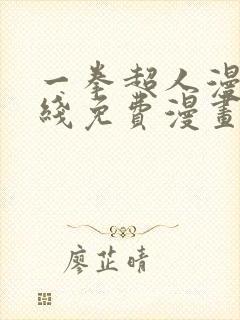 一拳超人漫
綫免費漫畫
廖芷晴